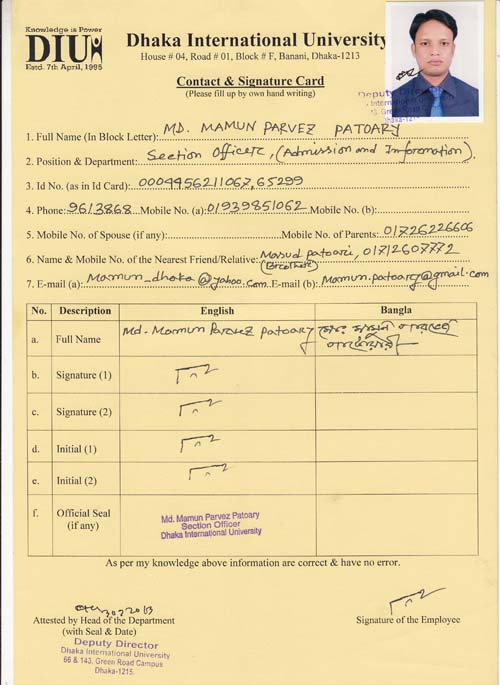 Knowledge is Power
DIU
Estd. 7th April, 1995
Dhaka International University
House # 04, Road # 01, Block # F, Banani, Dhaka-1213
Contact & Signature Card
(Please fill up by own hand writing)
Deputy Director
Dhaka-1215
1. Full Name (In Block Letter): MD. MAMUN PARVEZ PATOARY
2. Position & Department: Section Officer, (Admission and Information).
3. Id No. (as in Id Card): 0004456211067, 65299
4. Phone: 9613868 Mobile No. (a): 01939851062 Mobile No. (b):
5. Mobile No. of Spouse (if any): Mobile No. of Parents: 01726226606
6. Name & Mobile No. of the Nearest Friend/Relative: Masud Patoari, 01712607772
(Brother)
7. E-mail (a): Mamun_dhaka@yahoo.com E-mail (b): Mamun.patoary@gmail.com
No. Description English Bangla
a. Full Name Md. Mamun Parvez Patoary মোঃ মামুন পারভেজ
পাটোয়ারী
b. Signature (1)
c. Signature (2)
d. Initial (1)
e. Initial (2)
f. Official Seal
(if any)
Md. Mamun Parvez Patoary
Section Officer
Dhaka International University
As per my knowledge above information are correct & have no error.
Attested by Head of the Department
(with Seal & Date)
Signature of the Employee
Deputy Director
Dhaka International University
66 & 143, Green Road Campus
Dhaka-1215.